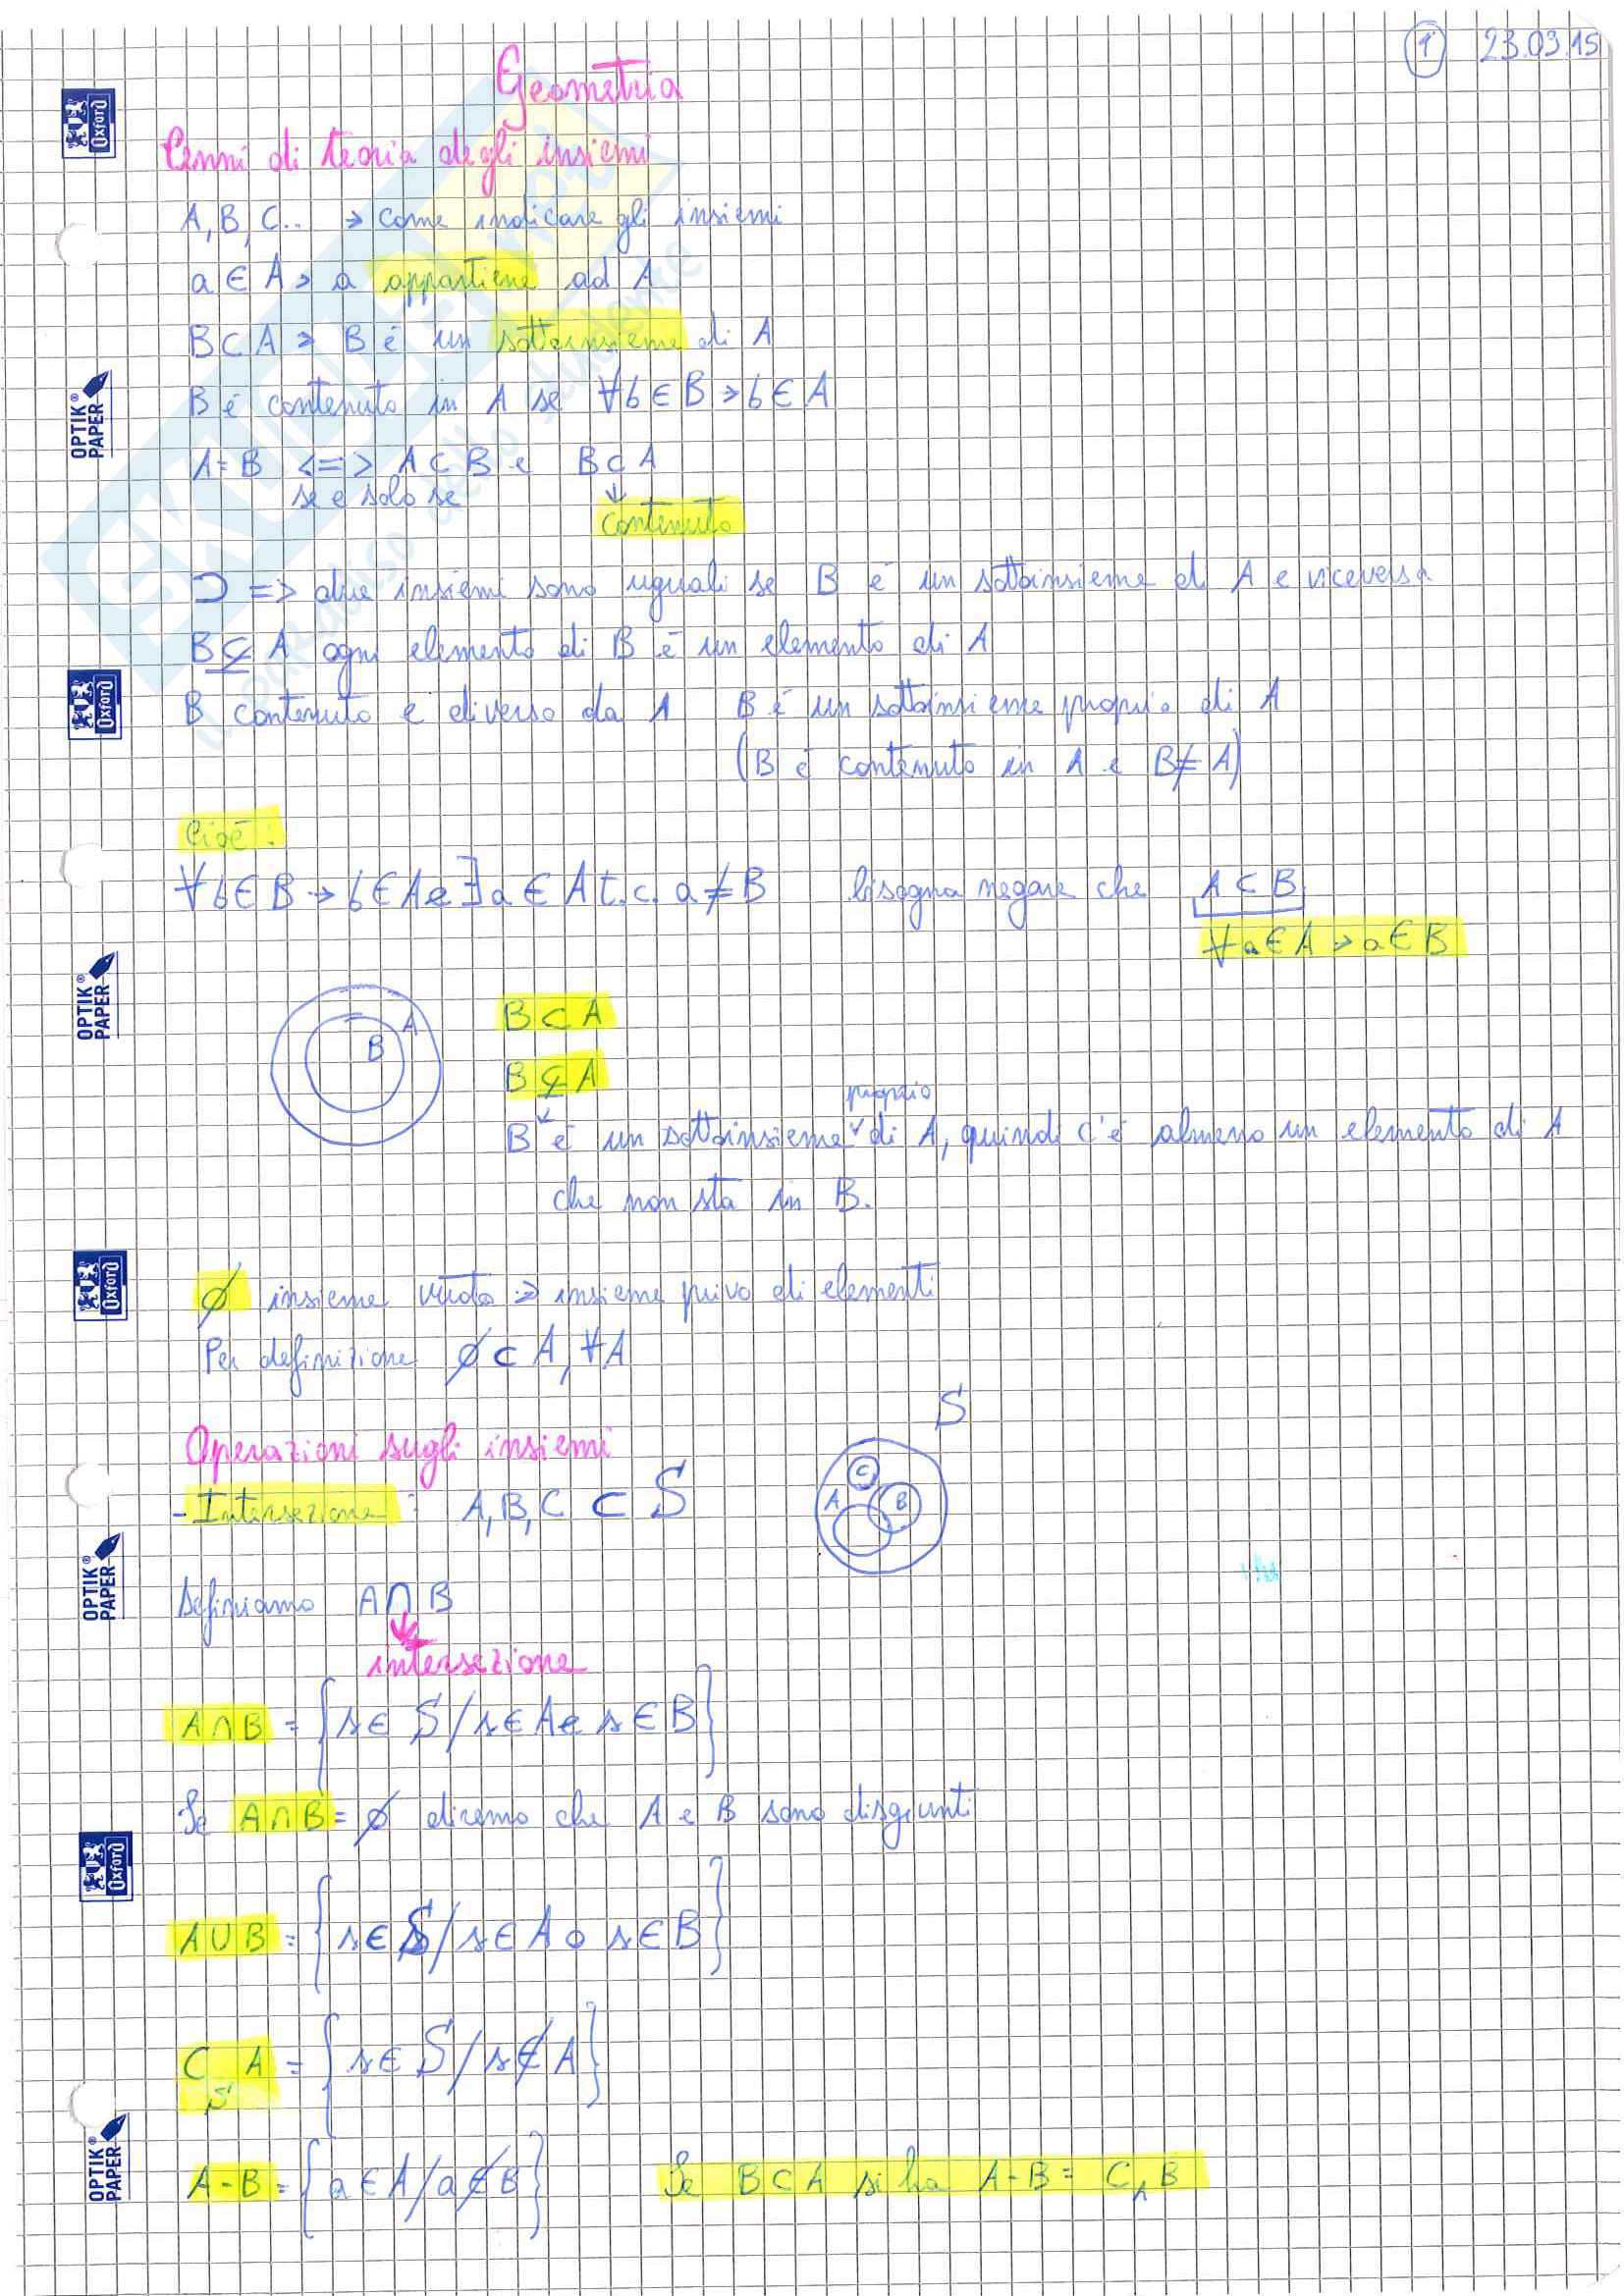 ① 23.03.15
Geometria
Cenni di teoria degli insiemi
A, B, C.. → come indicare gli insiemi
a ∈ A → a appartiene ad A
B ⊂ A → B é un sottoinsieme di A
B é contenuto in A se ∀b ∈ B → b ∈ A
A = B <=> A ⊂ B e B ⊂ A
se e solo se
↓
contenuto
⊃ => due insiemi sono uguali se B é un sottoinsieme di A e viceversa
B ⊊ A ogni elemento di B é un elemento di A
B contenuto e diverso da A B é un sottoinsieme proprio di A
(B é contenuto in A e B ≠ A)
Cioè:
∀b ∈ B → b ∈ A e ∃a ∈ A t.c. a ≠ B bisogna negare che A ⊂ B
∀a ∈ A → a ∈ B
A
B
B ⊂ A
B ⊊ A
proprio
B é un sottoinsieme ˅ di A, quindi c'é almeno un elemento di A
che non sta in B.
∅ insieme vuoto => insieme privo di elementi
Per definizione ∅ ⊂ A, ∀A
S
Operazioni sugli insiemi
- Intersezione: A, B, C ⊂ S
C
A B
Definiamo A ∩ B
↓
intersezione
A ∩ B = {s ∈ S / s ∈ A e s ∈ B}
Se A ∩ B = ∅ diremo che A e B sono disgiunti
A ∪ B = {s ∈ S / s ∈ A o s ∈ B}
C_S A = {s ∈ S / s ∉ A}
A - B = {a ∈ A / a ∉ B} Se B ⊂ A si ha A - B = C_A B
Oxford
OPTIK® PAPER
Oxford
OPTIK® PAPER
Oxford
OPTIK® PAPER
Oxford
OPTIK® PAPER